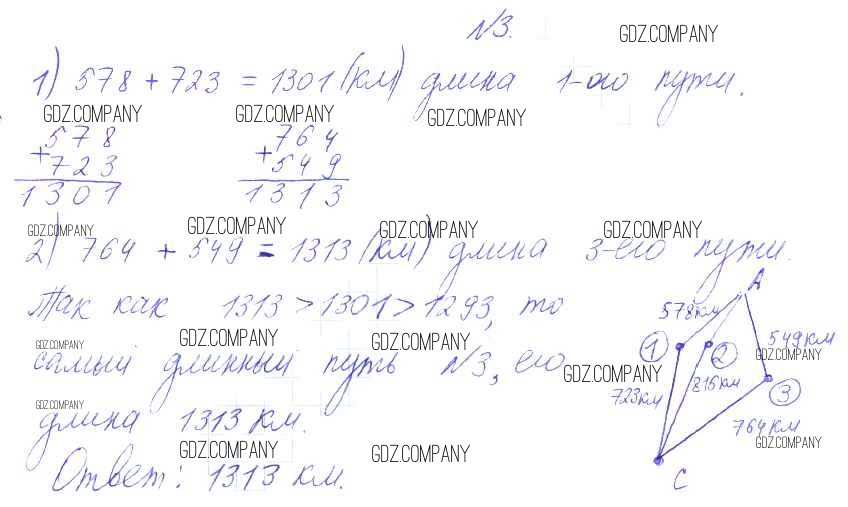 №3.
GDZ.COMPANY
1) 578 + 723 = 1301 (км) длина 1-ого пути.
GDZ.COMPANY GDZ.COMPANY GDZ.COMPANY
578 764
+723 +549
1301 1313
GDZ.COMPANY GDZ.COMPANY GDZ.COMPANY GDZ.COMPANY
2) 764 + 549 = 1313 (км) длина 3-его пути.
Так как 1313 > 1301 > 1293, то
GDZ.COMPANY GDZ.COMPANY GDZ.COMPANY
самый длинный путь №3, его
GDZ.COMPANY GDZ.COMPANY
длина 1313 км.
GDZ.COMPANY GDZ.COMPANY
Ответ: 1313 км.
A
578км
549км
1 2
GDZ.COMPANY
723км 815км
3
764км
GDZ.COMPANY
C